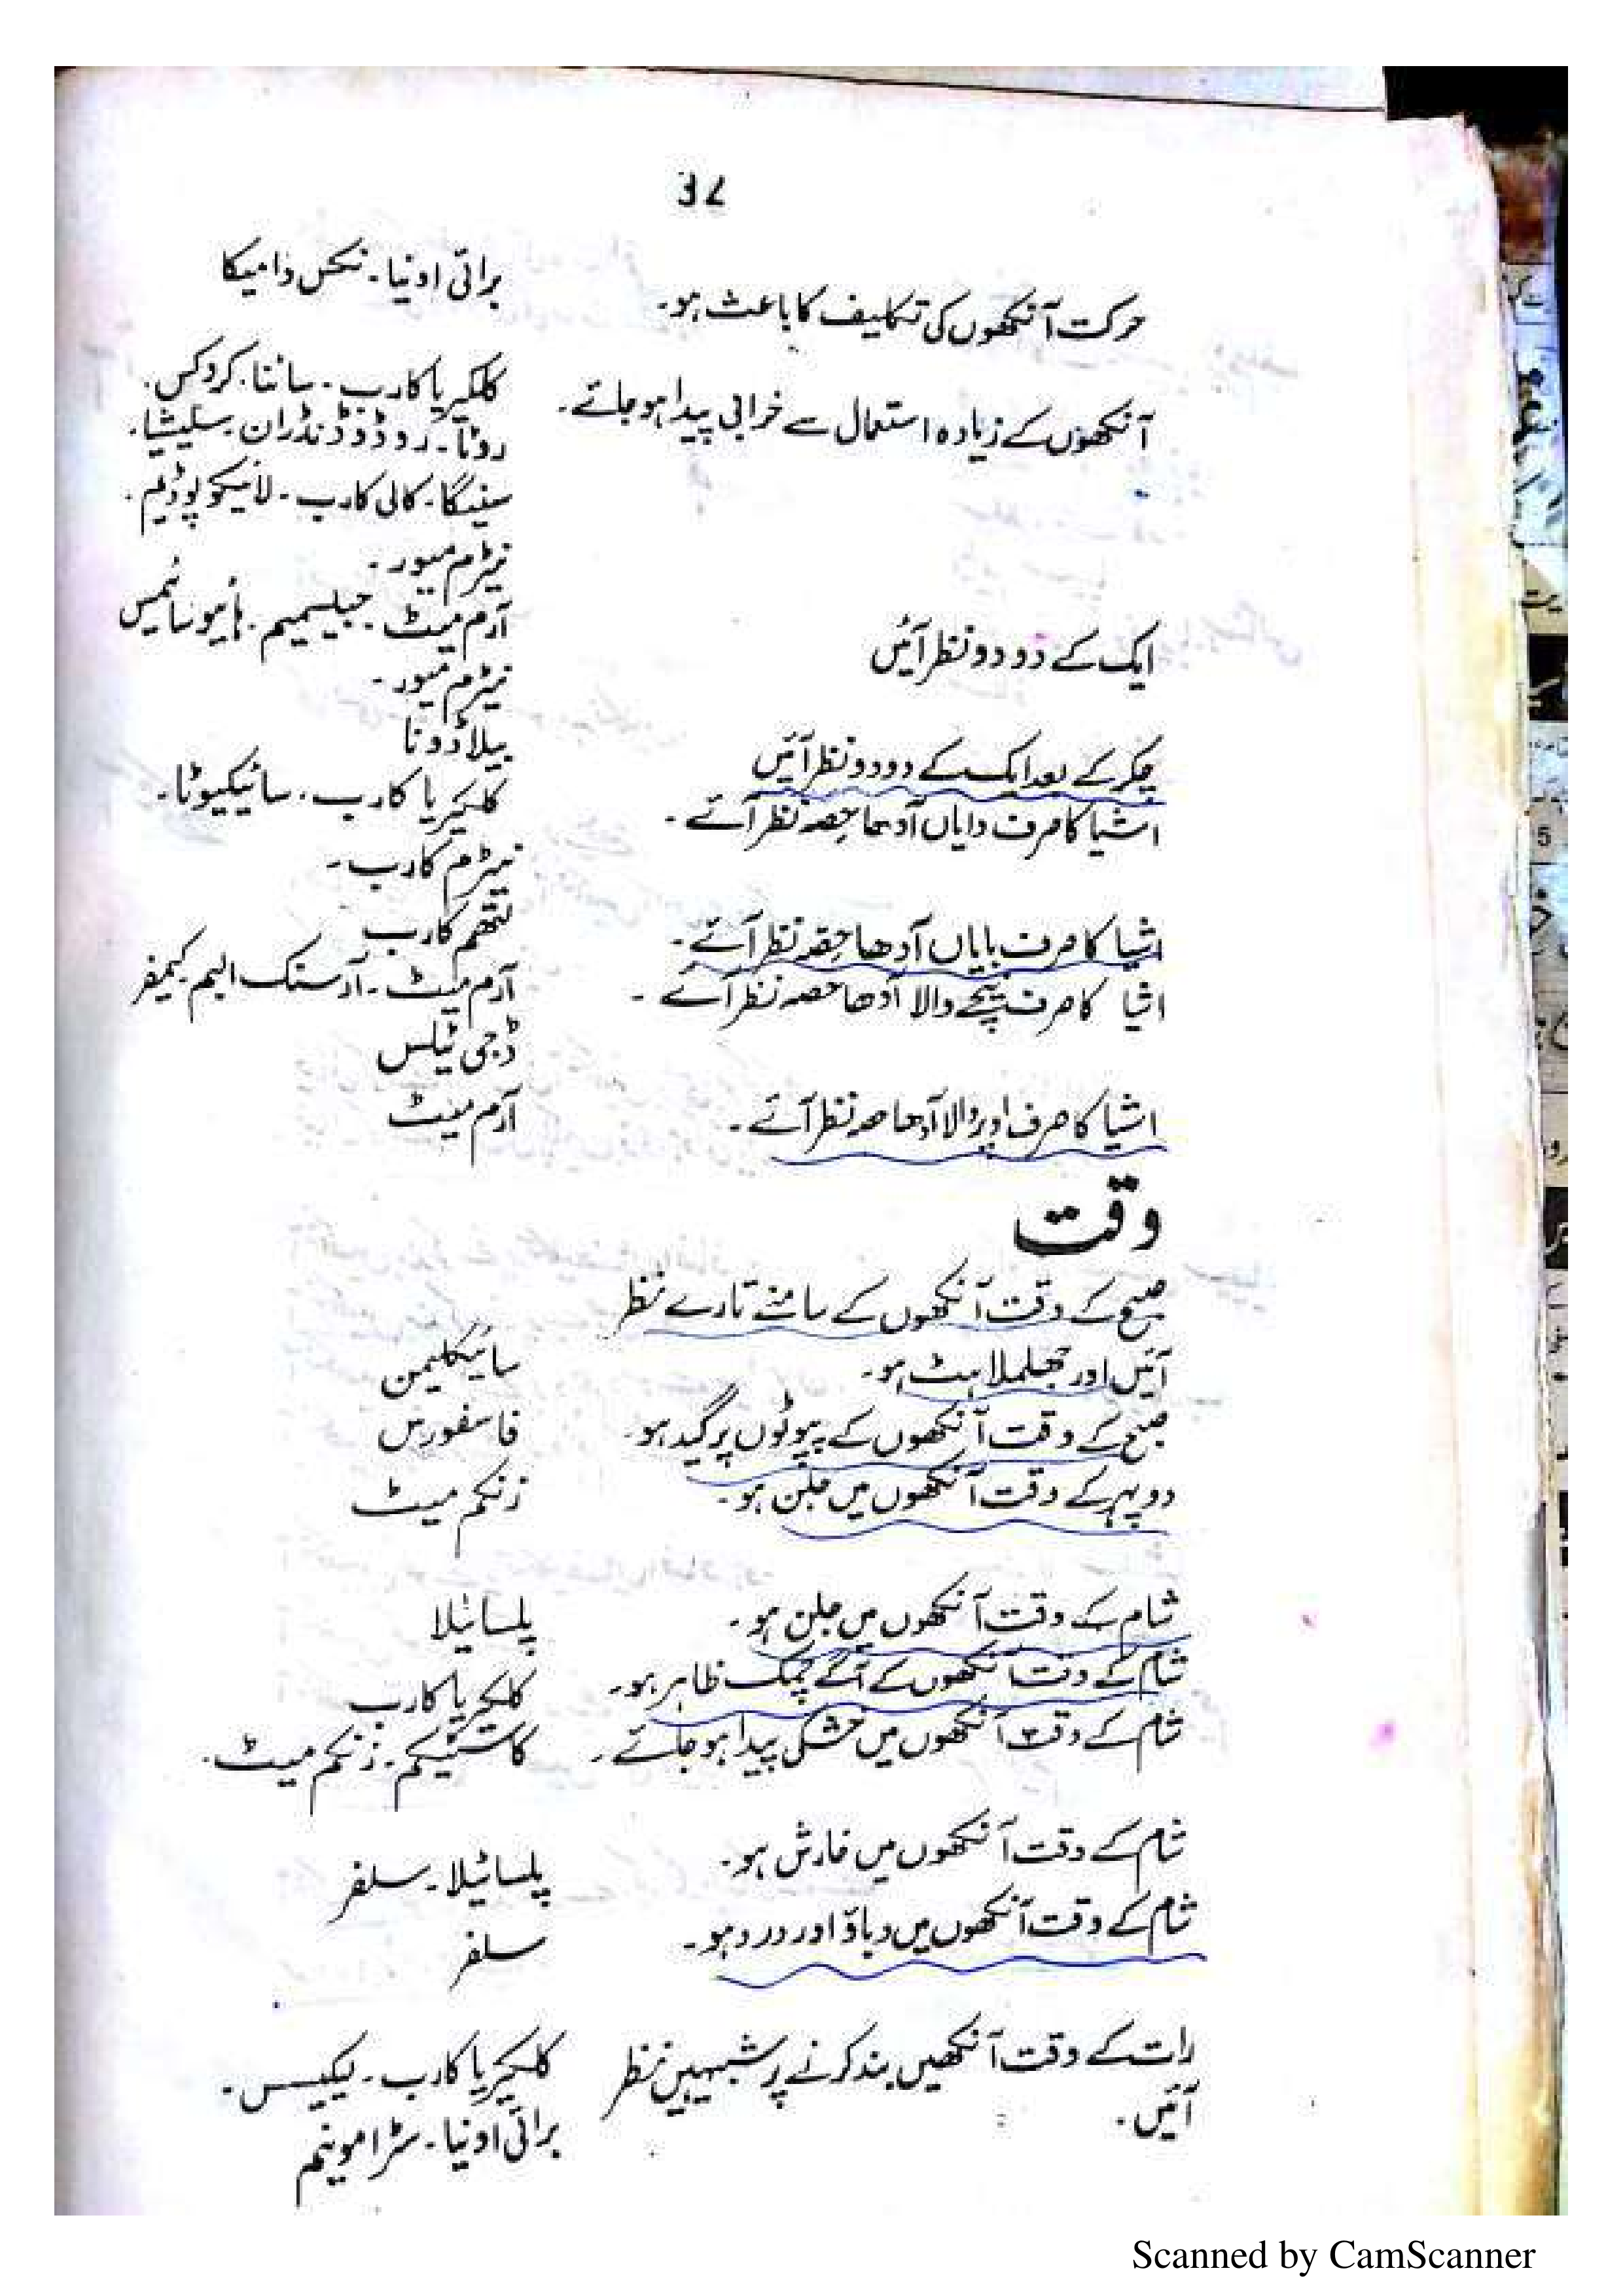 37
حرکت آنکھوں کی تکلیف کا باعث ہو۔ برائی اونیا۔ نکس وامیکا
آنکھوں کے زیادہ استعمال سے خرابی پیدا ہو جائے۔ کلکیریا کارب۔ سائنا۔ کروکس۔
روٹا۔ روڈوڈنڈران۔ سلیشیا۔
سینیگا۔ کالی کارب۔ لائیکوپوڈیم۔
نیٹرم میور۔
ایک کے دو دو نظر آئیں آرم میٹ۔ جیلسیمیم۔ ہائیوسائمس
نیٹرم میور۔
چکر کے بعد ایک کے دو دو نظر آئیں بیلاڈونا
اشیا کا صرف دایاں آدھا حصہ نظر آئے۔ کلکیریا کارب۔ سائیکیوٹا۔
نیٹرم کارب۔
اشیا کا صرف بایاں آدھا حصہ نظر آئے۔ لتھم کارب
اشیا کا صرف نیچے والا آدھا حصہ نظر آئے۔ آرم میٹ۔ آرسنک البم۔ کیمفر
ڈجی ٹیلس
اشیا کا صرف اوپر والا آدھا حصہ نظر آئے۔ آرم میٹ
وقت
صبح کے وقت آنکھوں کے سامنے تارے نظر
آئیں اور جھلملاہٹ ہو۔ سائیکلیمن
صبح کے وقت آنکھوں کے پپوٹوں پر گید ہو۔ فاسفورس
دوپہر کے وقت آنکھوں میں جلن ہو۔ زنکم میٹ
شام کے وقت آنکھوں میں جلن ہو۔ پلساٹیلا
شام کے وقت آنکھوں کے آگے چمک ظاہر ہو۔ کلکیریا کارب
شام کے وقت آنکھوں میں خشکی پیدا ہو جائے۔ کاسٹیکم۔ زنکم میٹ۔
شام کے وقت آنکھوں میں خارش ہو۔ پلساٹیلا۔ سلفر
شام کے وقت آنکھوں میں دباؤ اور درد ہو۔ سلفر
رات کے وقت آنکھیں بند کرنے پر شبیہیں نظر کلکیریا کارب۔ لیکیسس۔
آئیں۔ برائی اونیا۔ سٹرامونیم
Scanned by CamScanner